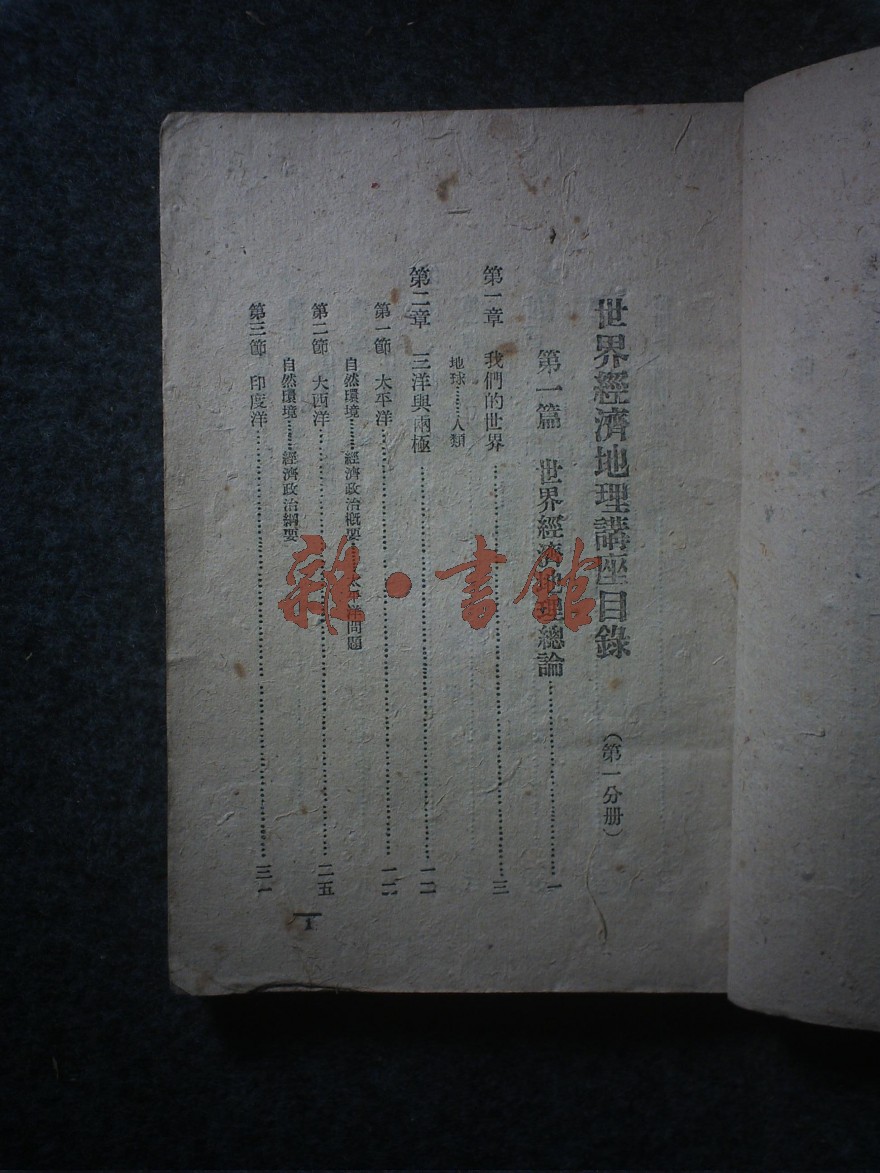 世界經濟地理講座目錄 (第一分册)
第一篇 世界經濟地理總論……一
第一章 我們的世界……三
地球……人類
第二章 三洋與兩極……一二
第一節 太平洋……一二
自然環境……經濟政治概要……太平洋問題
第二節 大西洋……二五
自然環境……經濟政治綱要
第三節 印度洋……三一
1
雜·書館